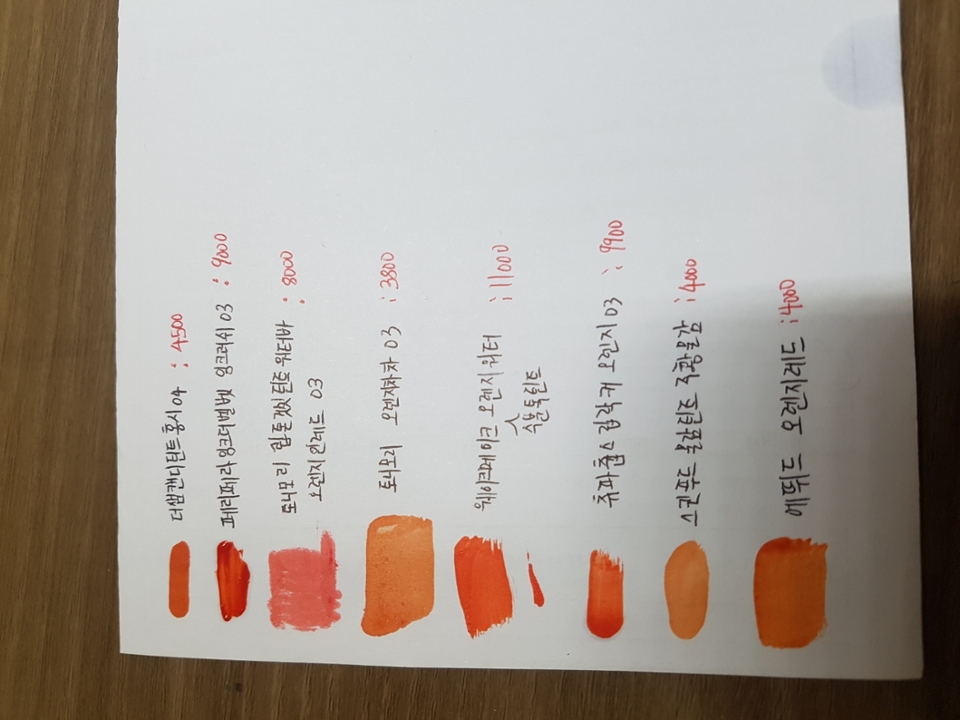 더샘캔디틴트홍시 04 : 4500
페리페라 잉크더벨벳 잉크러쉬 03 : 9000
토니모리 립톤겟잇틴트 워터바 : 8000
오렌지인레드 03
토니모리 오렌지차차 03 : 3800
웨이크메이크 오렌지워터 : 11000
수분톡틴트
츄파춥스 오렌지 03 : 9900
스킨푸드 물감틴트 주황물감 : 4000
에뛰드 오렌지레드 : 4000